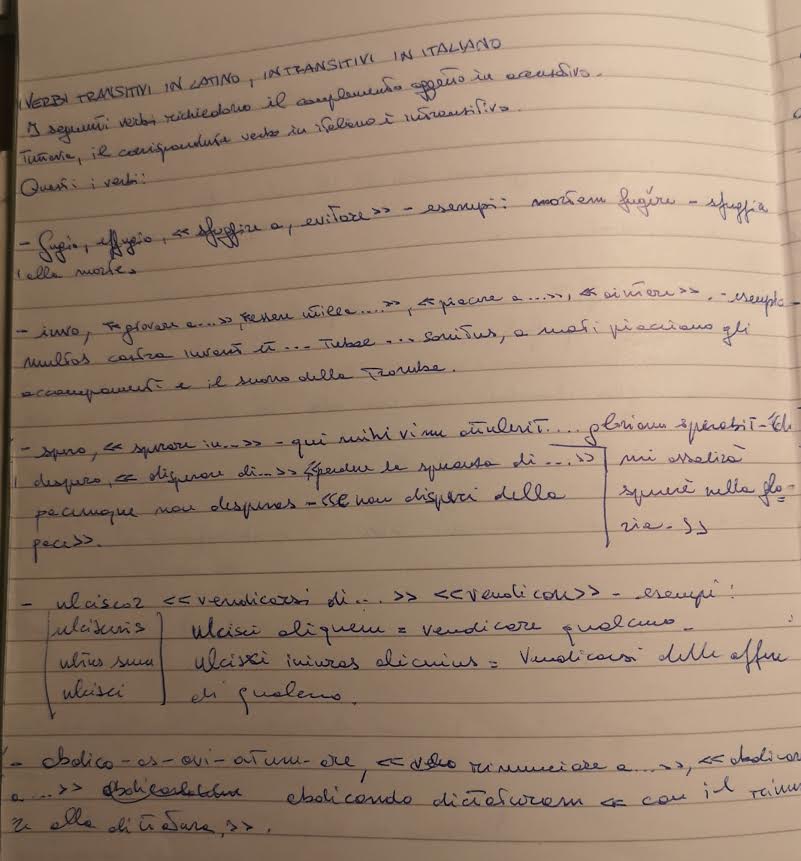 VERBI TRANSITIVI IN LATINO, INTRANSITIVI IN ITALIANO
I seguenti verbi richiedono il complemento oggetto in accusativo.
Tuttavia, il corrispondente verbo in italiano è intransitivo.
Questi i verbi:
- fugio, effugio, << sfuggire a, evitare >> - esempi: mortem fugĕre - sfuggia
alla morte.
- iuvo, << giovare a...>>, <<essere utile a....>>, << piacere a ...>>, << aiutare >>. - esempio -
multos castra iuvant et ... tubae ... sonitus, a molti piacciono gli
accampamenti e il suono della tromba.
- spero, << sperare in...>> - qui mihi vim attulerit.... gloriam sperabit - <<Chi
despero, << disperare di...>> <<perdere la speranza di ...>> mi assalirà
pacemque non desperas - <<E non disperi della spererà nella glo-
pace>>. ria. >>
- ulciscor <<vendicarsi di ... >> <<vendicare>> - esempi:
ulcisceris ulcisci aliquem = vendicare qualcuno.
ultus sum ulcisci iniuras alicuius = Vendicarsi delle offese
ulcisci di qualcuno.
- abdico-as-avi-atum-are, << rinunciare a....>>, << abdicare
a ...>> abdicando dictaturam << con il rinun
re alla dittatura, >>.